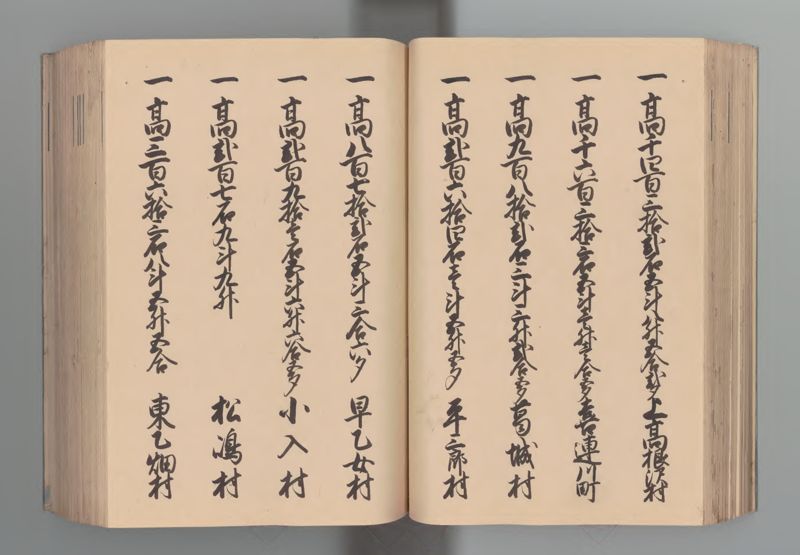 一 高千四百三拾弐石五斗八升五合弐夕 上高根沢村
一 高千六百三拾三石五斗壱升壱合七夕 喜連川町
一 高九百八拾弐石三斗三升弐合五夕 葛城村
一 高弐百六拾四石壱斗五升五夕 平三郎村
一 高八百七拾弐石五斗三合六夕 早乙女村
一 高弐百九拾壱石五斗六升六合五夕 小入村
一 高弐百七石九斗九升 松嶋村
一 高三百六拾三石八斗五升五合 東乙畑村